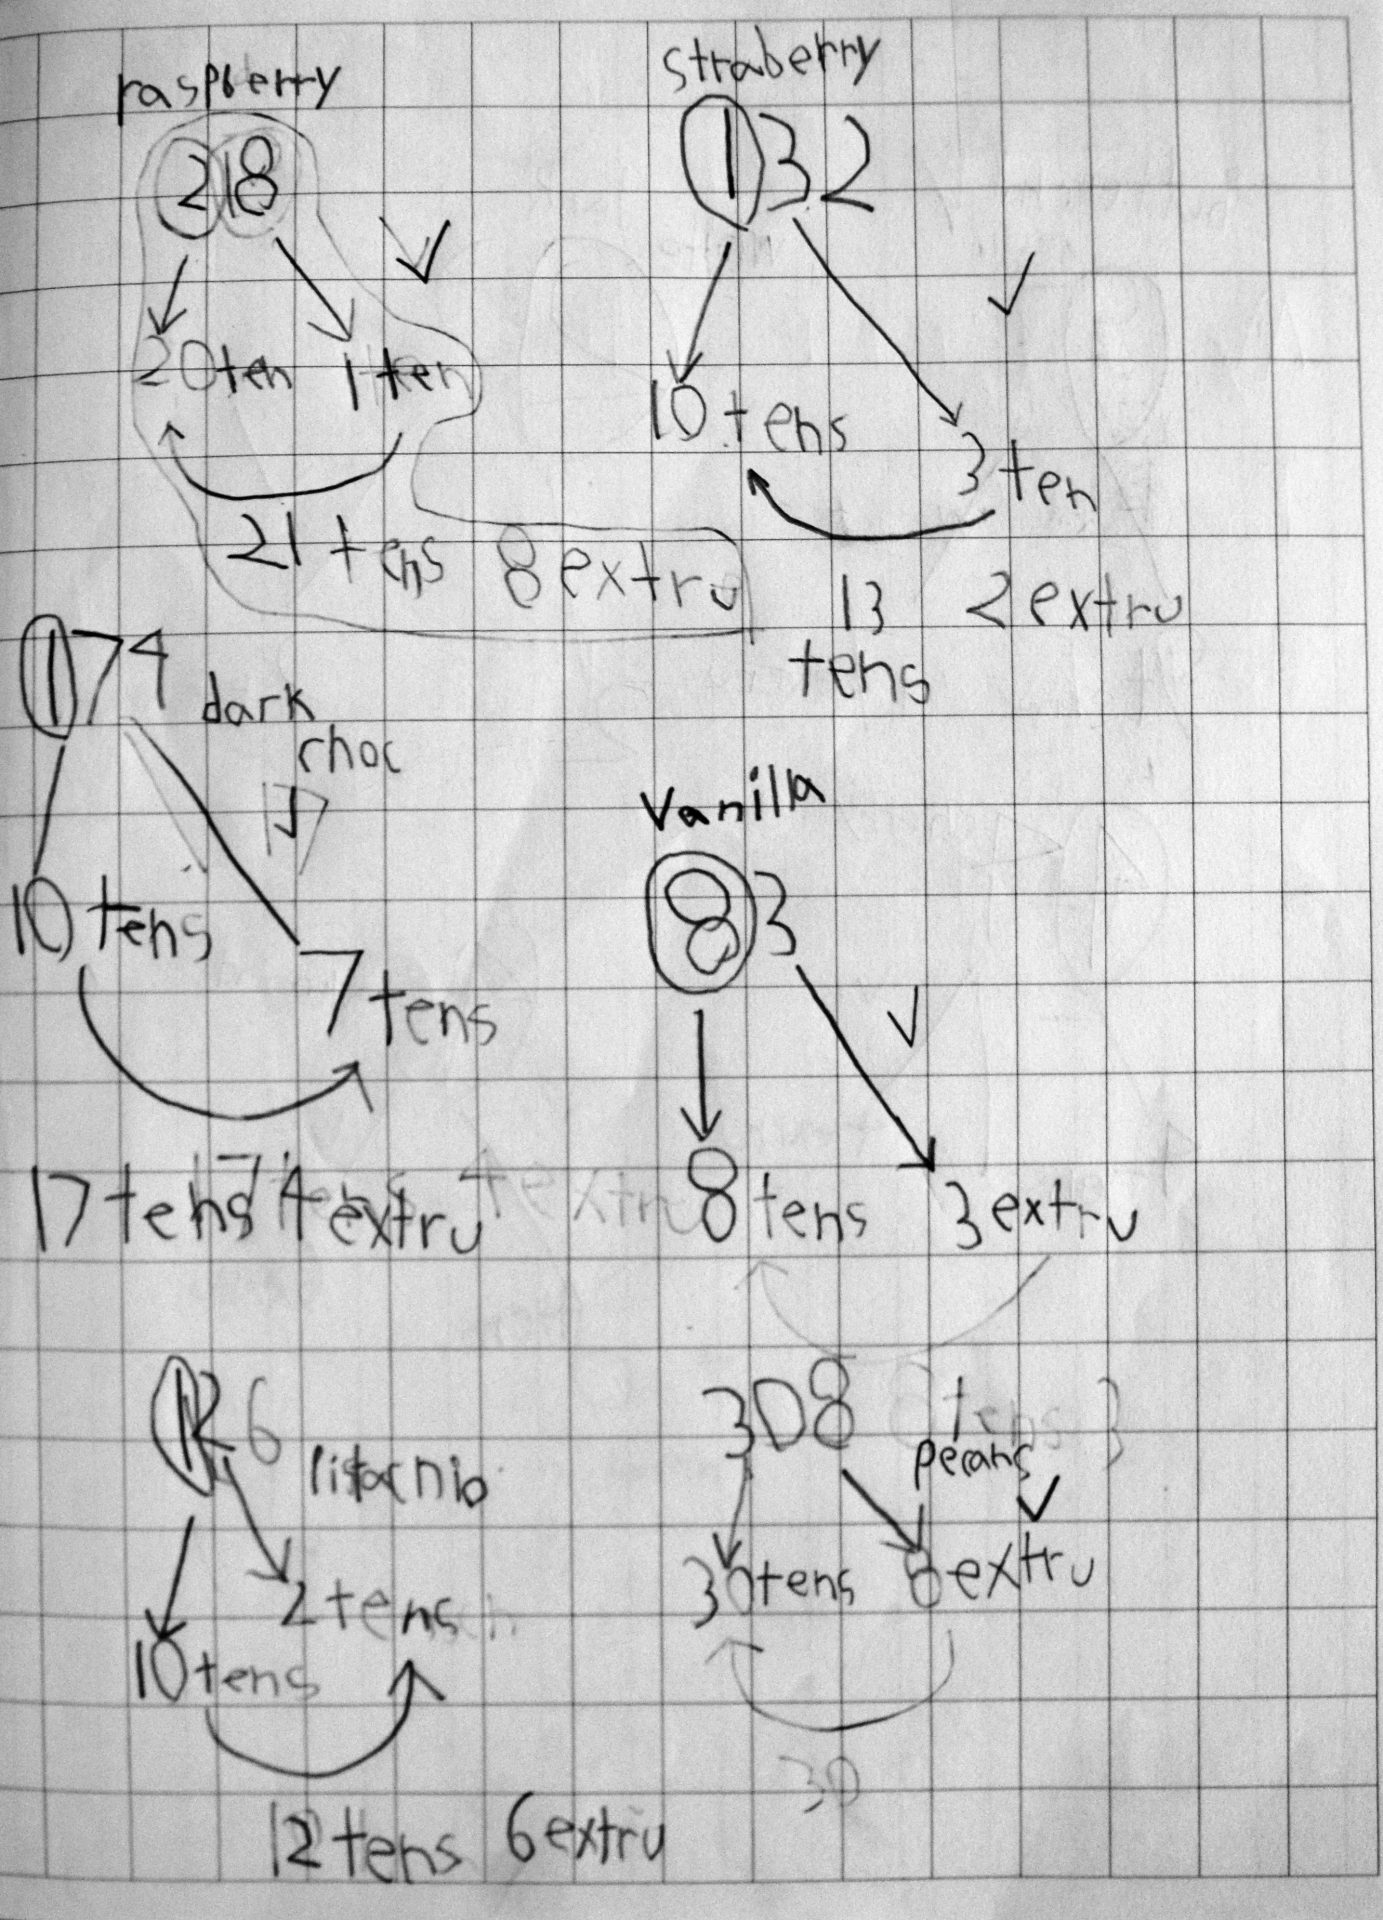 raspberry
218
20ten 1ten
21 tens 8 extru
straberry
132
10 tens
3 ten
13 2 extru
tens
174
dark
choc
10 tens
7 tens
17 tens 4 extru
Vanilla
83
8 tens 3 extru
126
10 tens
2 tens
12 tens 6 extru
308
pecans
30 tens 8 extru
30